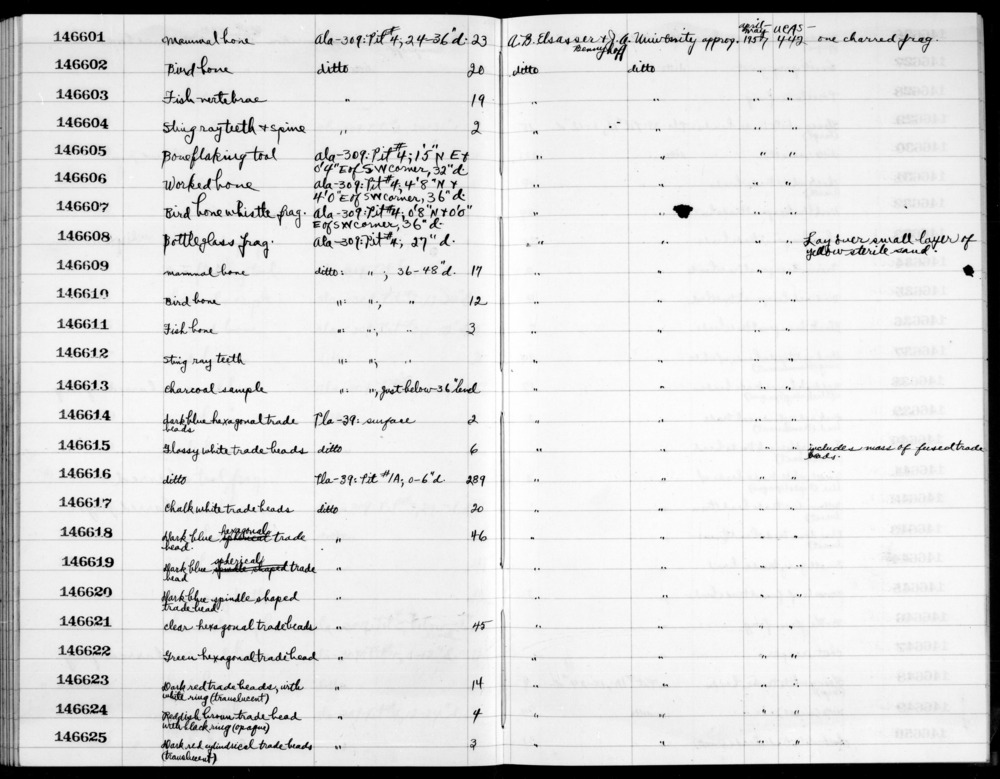 146601 Mammal bone Ala-309: Pit #4; 24-36" d. 23 A.B. Elsasser & J.A. Bennyhoff University approp. april-may 1957 UCAS-442 one charred frag.
146602 Bird bone ditto 20 ditto ditto " "
146603 Fish vertebrae " 19 " " " "
146604 Sting ray teeth + spine " 2 " " " "
146605 Bone flaking tool Ala-309: Pit #4; 1'5" N E +
0'4" E of SW corner, 32" d. " " " "
146606 Worked bone Ala-309: Pit #4; 4'8" N +
4'0" E of SW corner, 36" d. " " " "
146607 Bird bone whistle frag. Ala-309: Pit #4; 0'8" N + 0'0"
E of SW corner, 36" d. " " " "
146608 Bottle glass frag. Ala-309: Pit #4; 27" d. " " " " Lay over small layer of
yellow sterile sand.
146609 mammal bone ditto: " ; 36-48" d. 17 " " " "
146610 Bird bone ": "; " 12 " " " "
146611 Fish bone ": "; " 3 " " " "
146612 Sting ray teeth ": "; " " " " "
146613 Charcoal sample ": "; just below 36" level " " " "
146614 dark blue hexagonal trade
beads Pla-39: surface 2 " " " "
146615 Glossy white trade beads ditto 6 " " " " includes mass of fused trade
beads.
146616 ditto Pla-39: Pit #1A; 0-6" d. 289 " " " "
146617 Chalk white trade beads ditto 20 " " " "
146618 Dark blue hexagonal trade
bead. " 46 " " " "
146619 Dark blue spherical spindle shaped trade
bead " " " " "
146620 Dark blue spindle shaped
trade bead " " " " "
146621 clear hexagonal trade beads " 45 " " " "
146622 Green hexagonal trade bead " " " " "
146623 Dark red trade beads, with
white ring (translucent) " 14 " " " "
146624 Reddish brown trade bead
with black ring (opaque) " 4 " " " "
146625 Dark red cylindrical trade beads
(translucent) " 3 " " " "